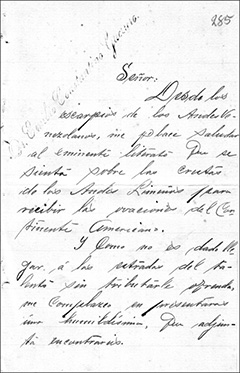 285
Señor:
Desde los
escarpeios de los Andes Ve-
nezolanos, me place saludar
al eminente literato que se
sienta sobre las crestas
de los Andes Limeños para
recibir las ovaciones del Con-
tinente Americano.
Y Como no es dado lle-
gar á las estradas del ta-
lento sin tributarle ofrenda,
me complazco en presentaros
una humildísima, que adjun-
ta encontraréis.